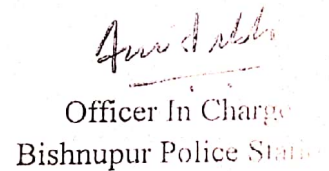 Officer In Charge
Bishnupur Police Station